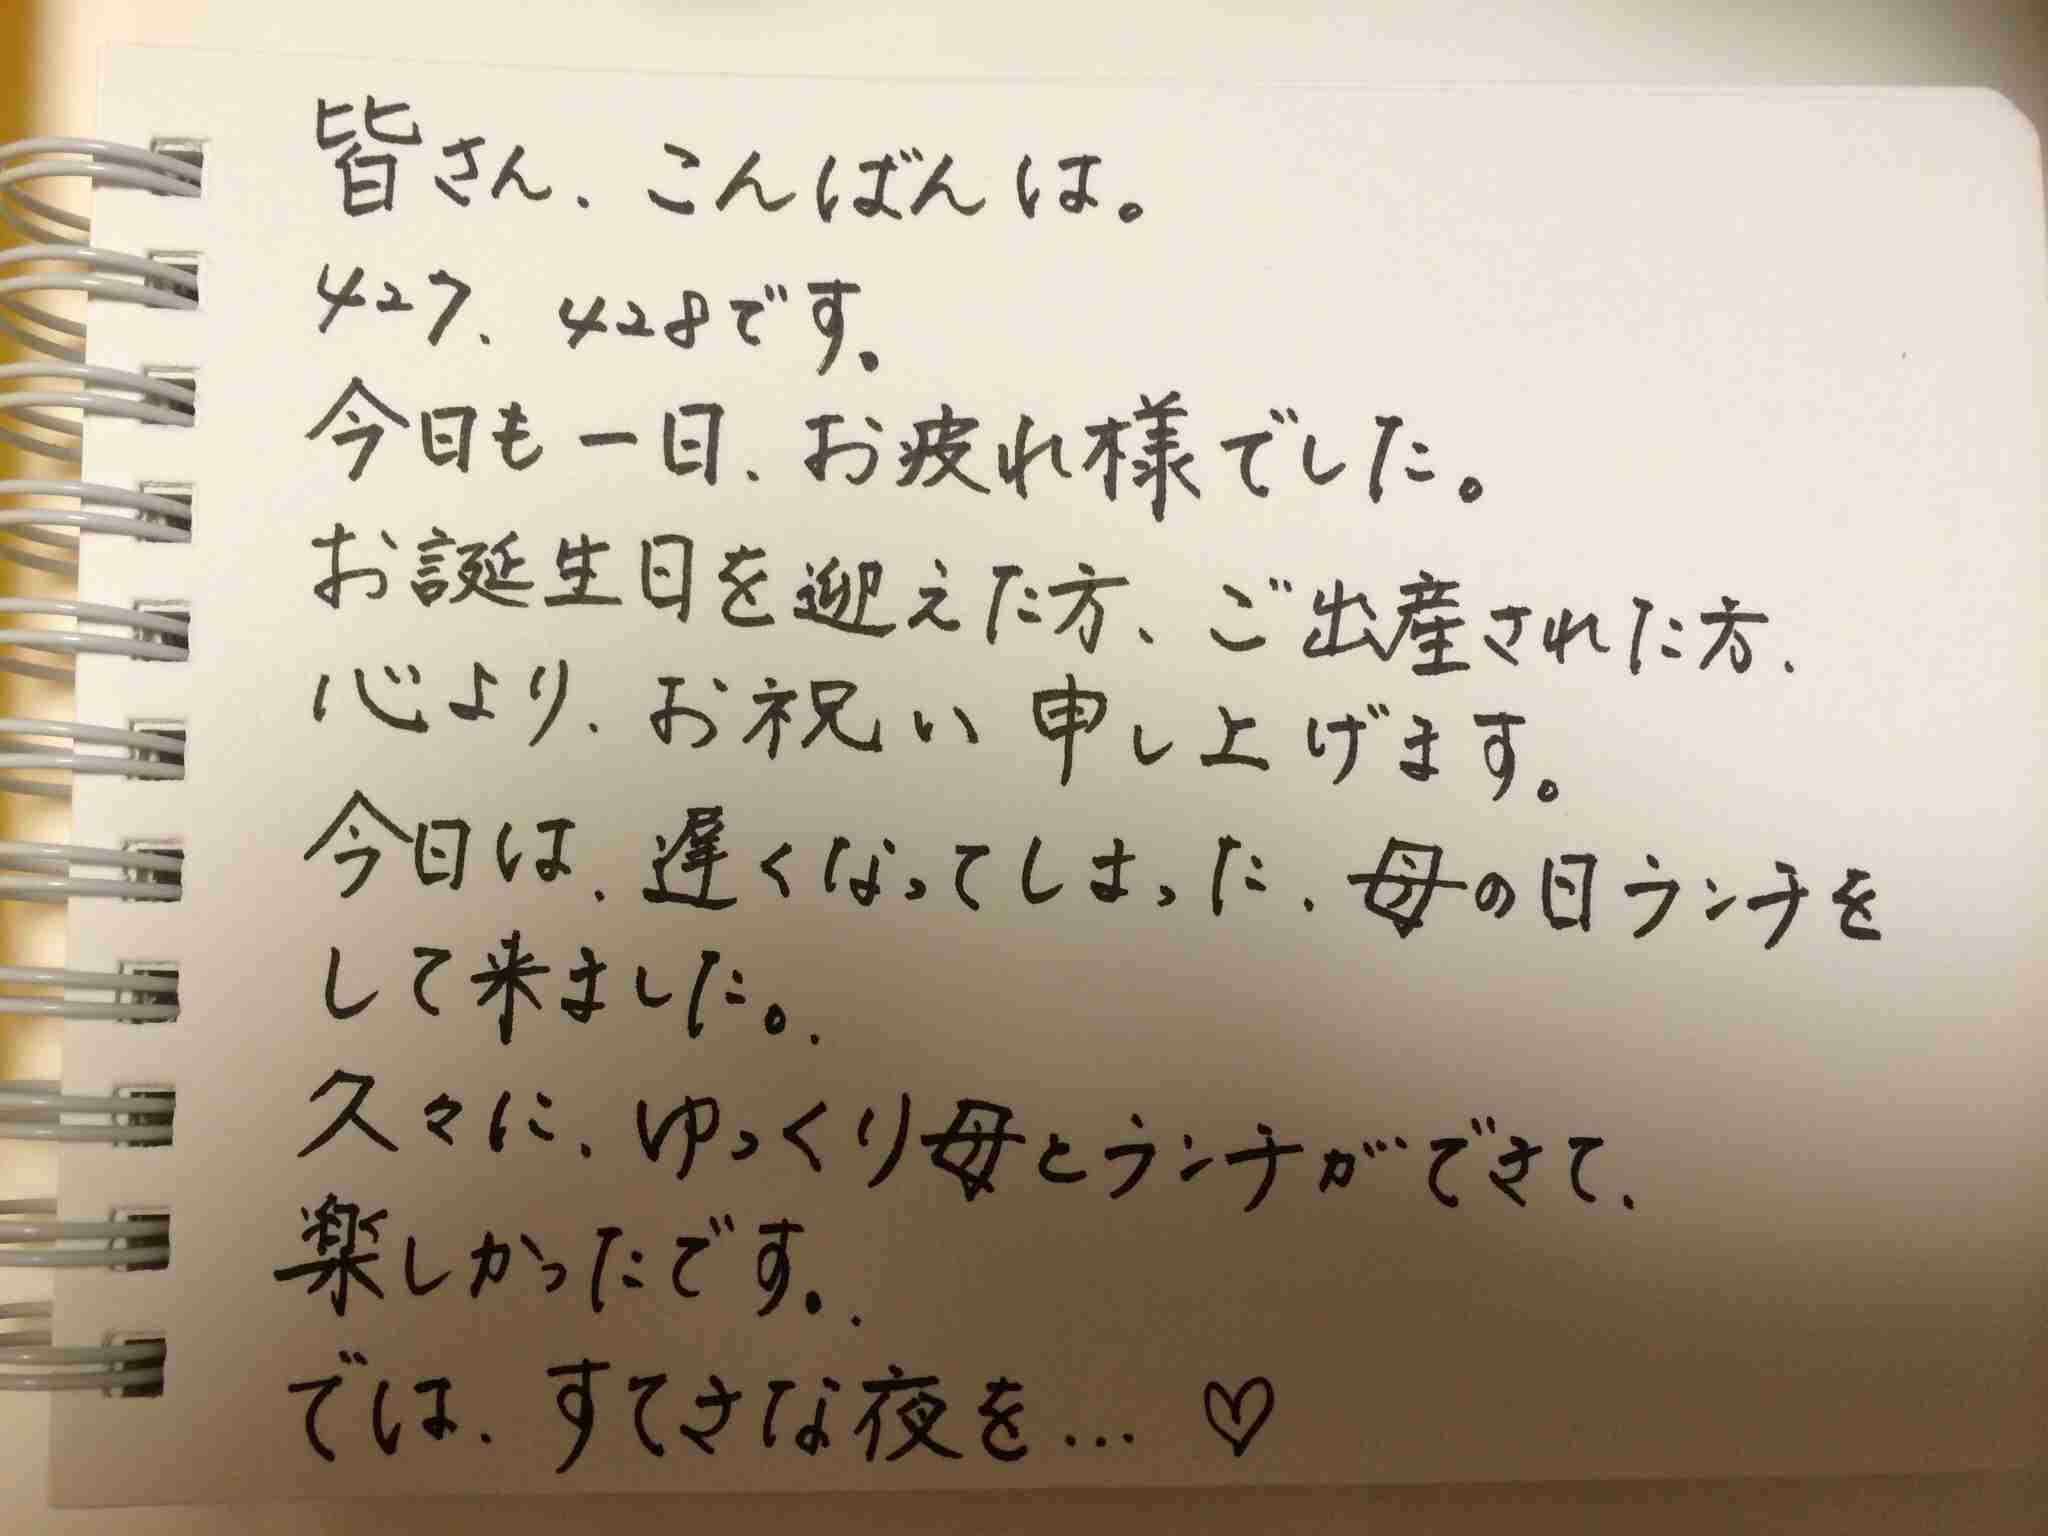 皆さん、こんばんは。
427、428です。
今日も一日、お疲れ様でした。
お誕生日を迎えた方、ご出産された方、
心より、お祝い申し上げます。
今日は、遅くなってしまった、母の日ランチを
して来ました。
久々に、ゆっくり母とランチができて、
楽しかったです。
では、すてきな夜を…♡